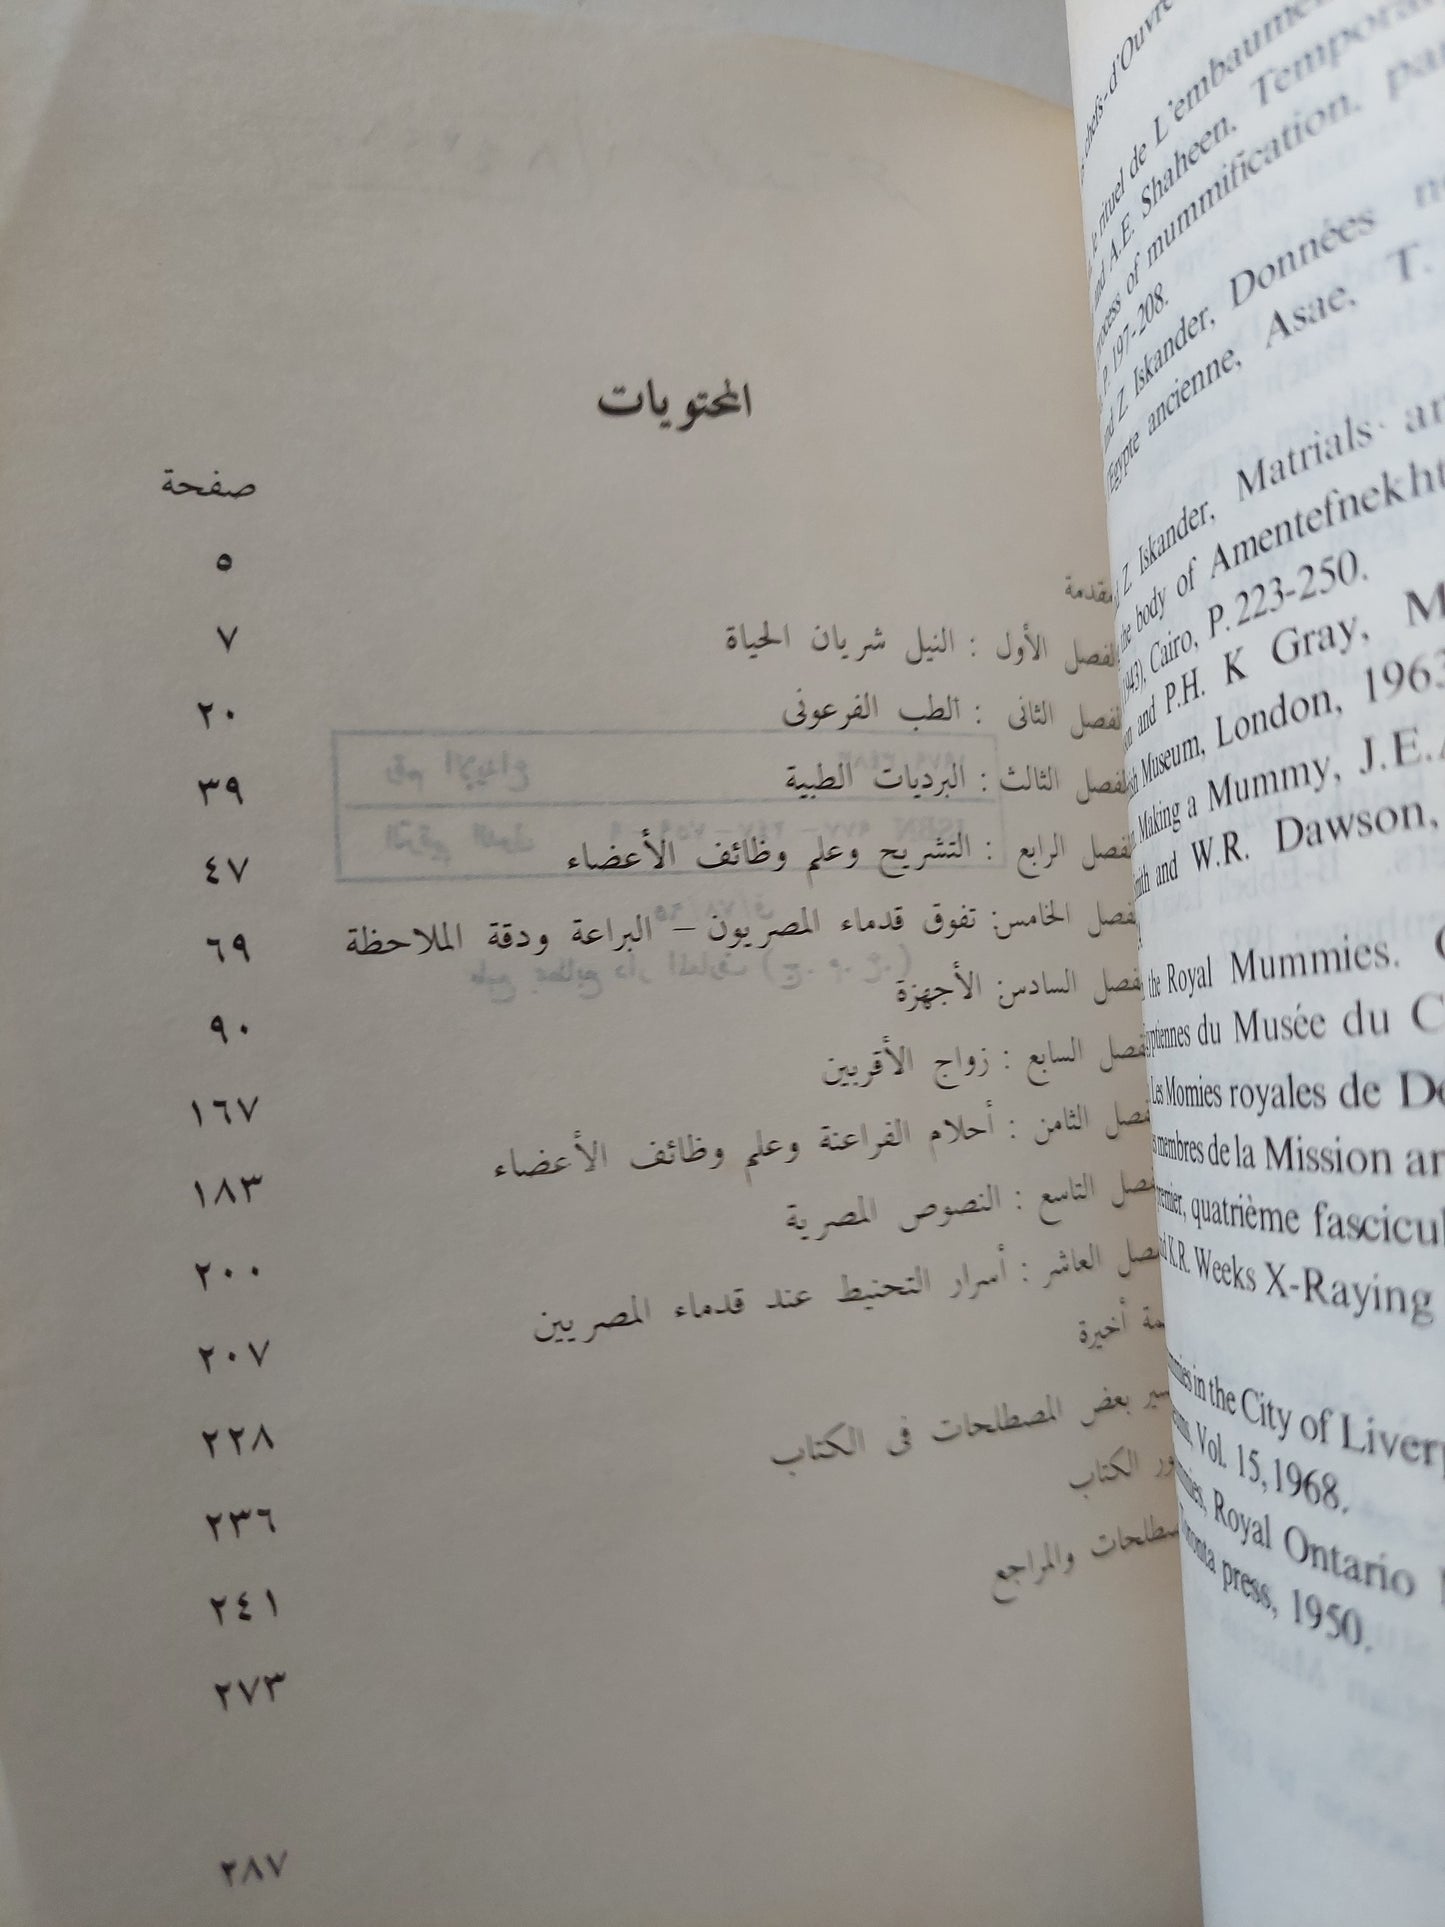 المحتويات
صفحة
مقدمة ٥
الفصل الأول : النيل شريان الحياة ٧
الفصل الثانى : الطب الفرعونى ٢٠
الفصل الثالث : البرديات الطبية ٣٩
الفصل الرابع : التشريح وعلم وظائف الأعضاء ٤٧
الفصل الخامس : تفوق قدماء المصريون – البراعة ودقة الملاحظة ٦٩
الفصل السادس : الأجهزة ٩٠
الفصل السابع : زواج الأقربين ١٦٧
الفصل الثامن : أحلام الفراعنة وعلم وظائف الأعضاء ١٨٣
الفصل التاسع : النصوص المصرية ٢٠٠
الفصل العاشر : أسرار التحنيط عند قدماء المصريين ٢٠٧
أخيرة ٢٢٨
بعض المصطلحات فى الكتاب ٢٣٦
الكتاب ٢٤١
والمراجع ٢٧٣
٢٨٧
chefs-d'Ouvre
rituel de L'embaumem
and A.E. Shaheen, Tempora
of mummification. pa
P. 197-208.
and Z. Iskander, Données
Egypte ancienne, Asae, T.
Z. Iskander, Matrials
the body of Amentefnekht
Cairo, P. 223-250.
and P.H. K Gray, M
Museum, London, 1963
Making a Mummy, J.E.A
and W.R. Dawson,
the Royal Mummies.
du Musée du C
Les Momies royales de
membres de la Mission
quatrième fascicul
K.R. Weeks X-Raying
in the City of Liverp
Vol. 15, 1968.
Royal Ontario
press, 1950.